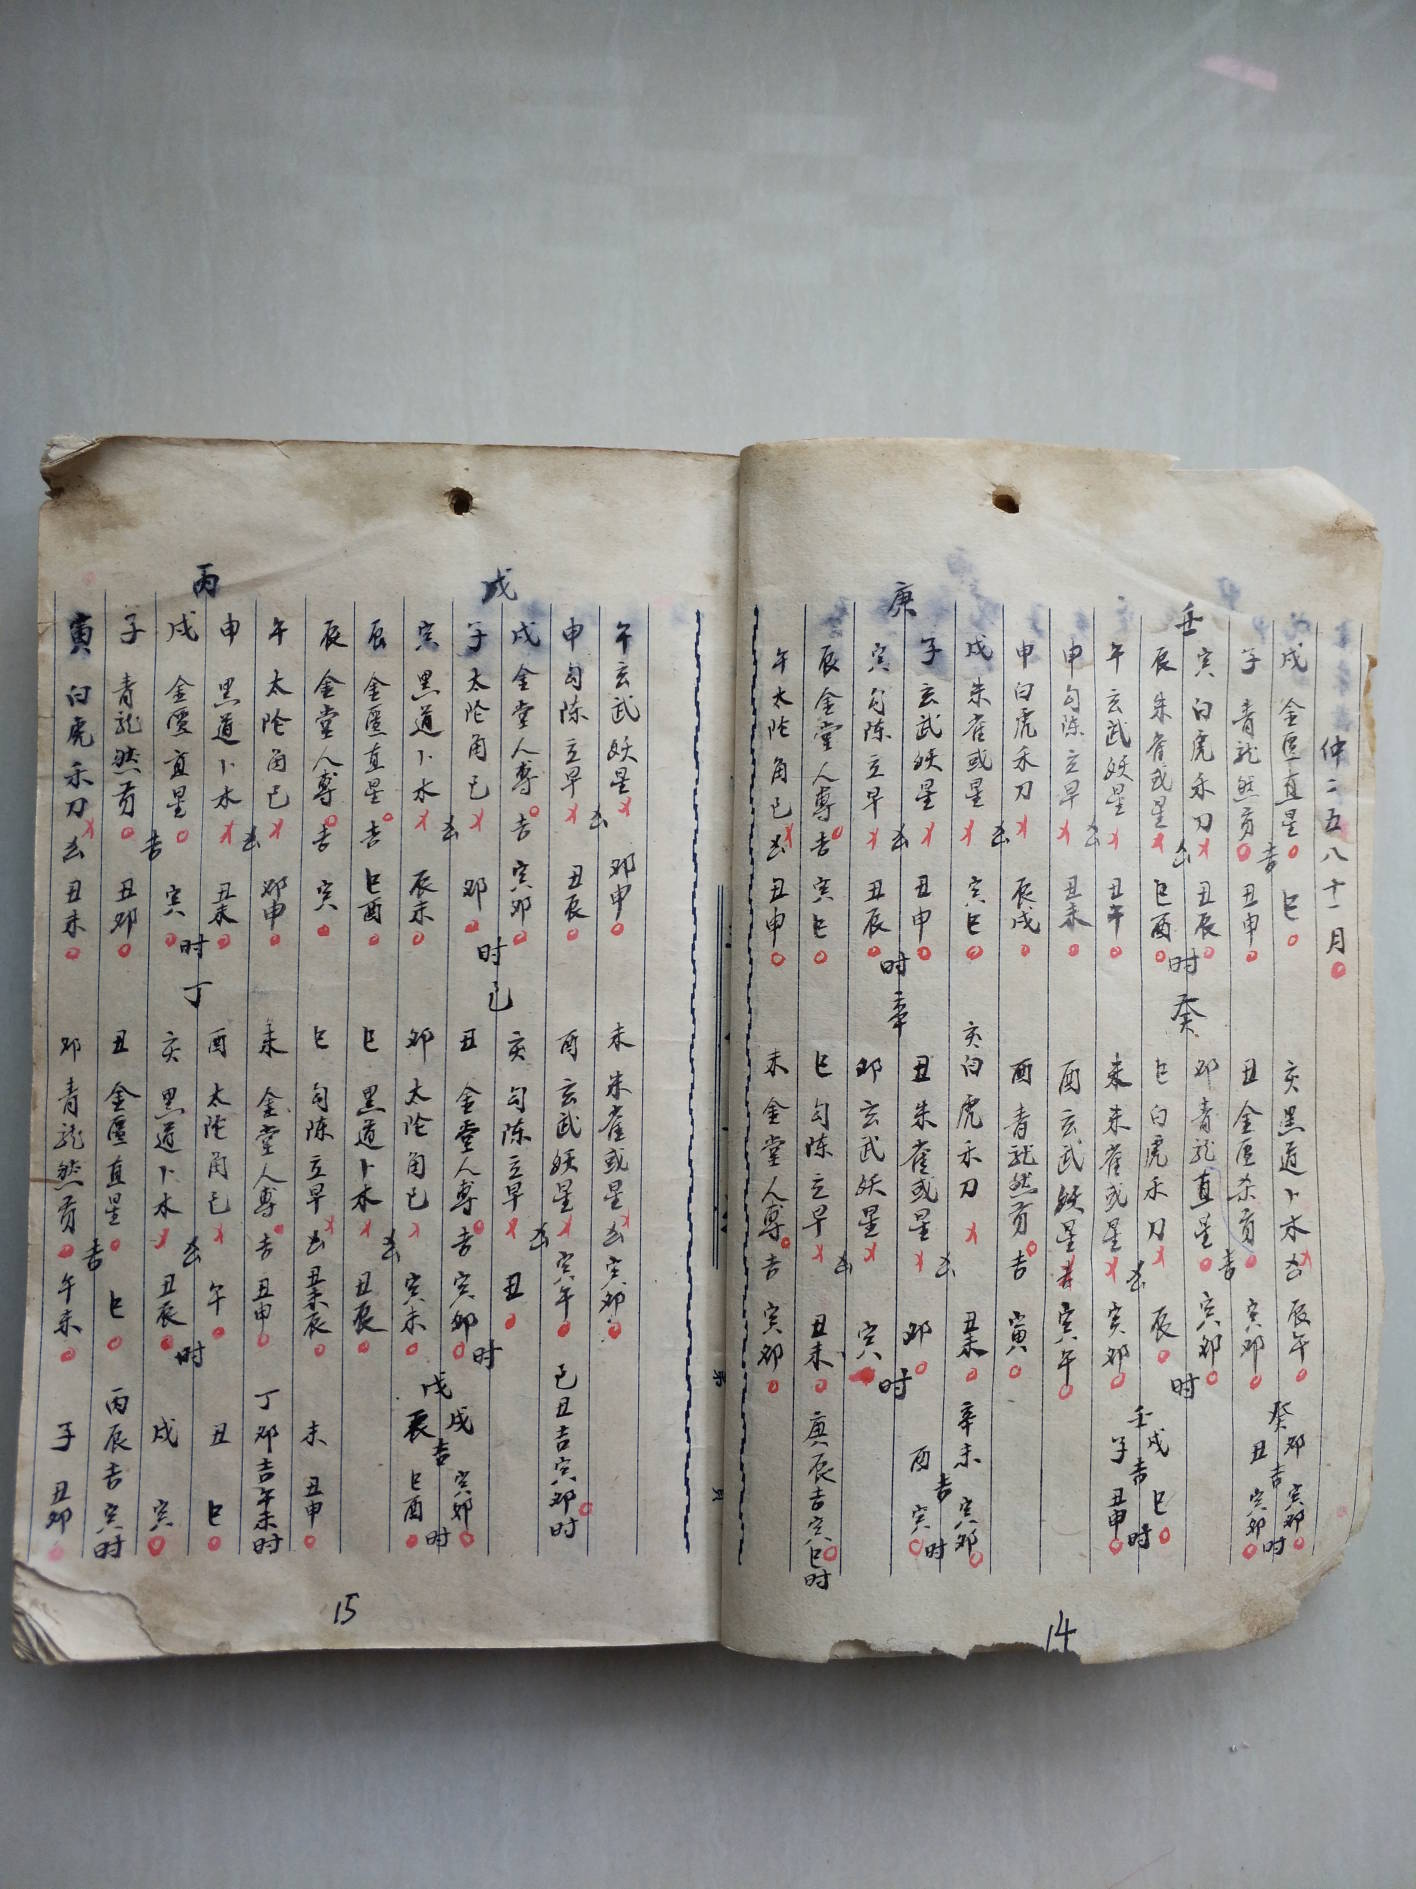 仲二五八十一月
壬
戌 金匮直星 吉 巳
子 青龙然贡 丑申
寅 白虎禾刀 凶 丑辰
辰 朱雀或星 巳酉 时
午 玄武妖星 凶 丑午
申 勾陈立早 丑未
申 白虎禾刀 凶 辰戌
戌 朱雀或星 寅巳
庚
子 玄武妖星 凶 丑申
寅 勾陈立早 丑辰 时
辰 金堂人專 吉 寅巳
午 太阴角己 凶 丑申
癸
亥 黑道卜木 凶 辰午
丑 金匮杀贡 吉 寅卯
卯 青龙直星 寅卯
巳 白虎禾刀 凶 辰 时
未 朱雀或星 寅卯
酉 玄武妖星 寅午
酉 青龙然贡 吉 寅
辛
亥 白虎禾刀 丑未
丑 朱雀或星 凶 卯
卯 玄武妖星 寅 时
巳 勾陈立早 凶 丑未
未 金堂人專 吉 寅卯
癸卯 寅卯
丑 吉 寅卯 时
壬戌 吉 巳
子 丑申 时
辛未 吉 寅卯
酉 寅 时
庚辰 吉 寅巳时
14
戊
午 玄武妖星 凶 卯申
申 勾陈立早 丑辰
戌 金堂人專 吉 寅卯
子 太阴角己 凶 卯 时
寅 黑道卜木 辰未
辰 金匮直星 吉 巳酉
辰 金堂人專 吉 寅
丙
午 太阴角己 凶 卯申
申 黑道卜木 丑未
戌 金匮直星 吉 寅 时
子 青龙然贡 丑卯
寅 白虎禾刀 凶 丑未
己
未 朱雀或星 凶 寅卯
酉 玄武妖星 寅午
亥 勾陈立早 凶 丑
丑 金堂人專 吉 寅卯 时
卯 太阴角己 寅未
巳 黑道卜木 凶 丑辰
巳 勾陈立早 凶 丑未辰
丁
未 金堂人專 吉 丑申
酉 太阴角己 午
亥 黑道卜木 凶 丑辰 时
丑 金匮直星 巳
卯 青龙然贡 吉 午未
己丑吉寅卯时
戊戌 吉 寅卯
辰 巳酉 时
未 丑申
丁卯吉午未时
丑 巳
戌 寅
丙辰吉寅时
子 丑卯
15